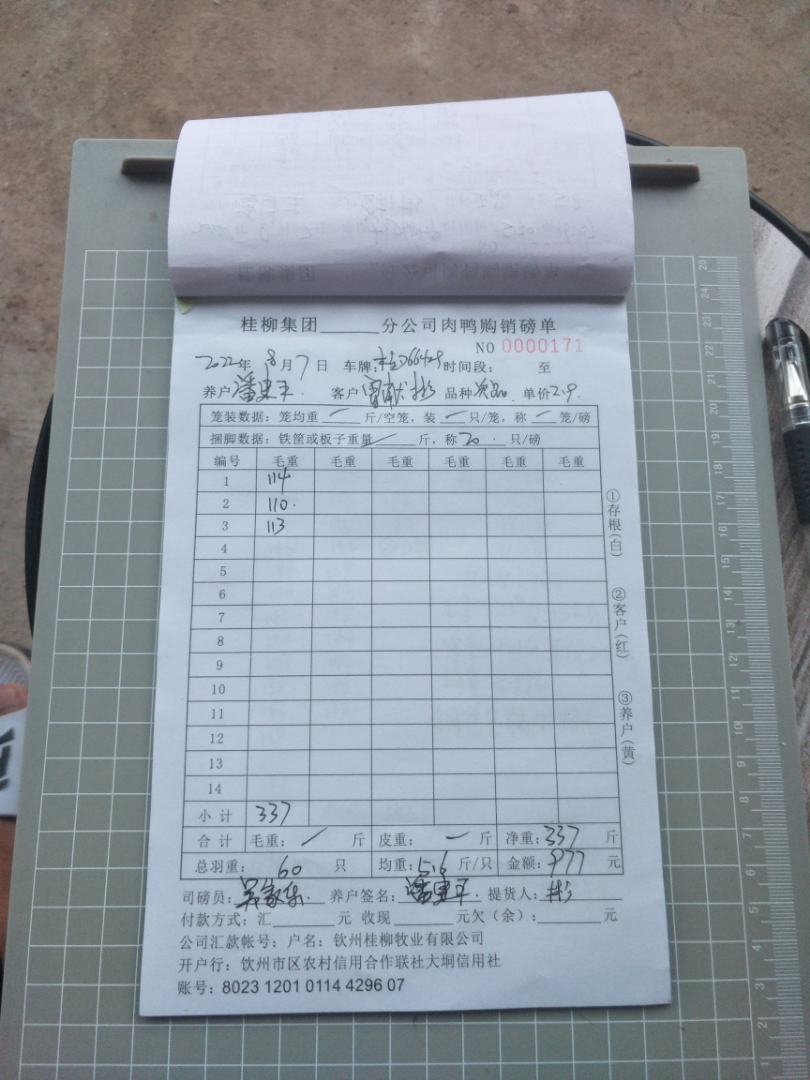 桂柳集团______分公司肉鸭购销磅单
NO 0000171
2022年 8月7日 车牌:桂D66429 时间段: 至
养户 潘里平. 客户 曾献彬 品种 次品. 单价2.9
笼装数据: 笼均重 — 斤/空笼, 装 — 只/笼, 称 — 笼/磅
捆脚数据: 铁筐或板子重量 — 斤, 称 20. 只/磅
编号 毛重 毛重 毛重 毛重 毛重 毛重
1 114
2 110.
3 113
4
5
6
7
8
9
10
11
12
13
14
小计 337
合计 毛重: / 斤 皮重: — 斤 净重: 337 斤
总羽重: 60 只 均重: 5.6 斤/只 金额: 977 元
司磅员: 养户签名: 潘里平. 提货人: 彬
付款方式: 汇______元 收现______元欠(余):______元
公司汇款帐号: 户名: 钦州桂柳牧业有限公司
开户行: 钦州市区农村信用合作联社大垌信用社
账号: 8023 1201 0114 4296 07
①存根(白)
②客户(红)
③养户(黄)
25
24
21
20
19
18
17
16
15
14
13
12
11
10
9
8
7
6
5
4
3
2
1